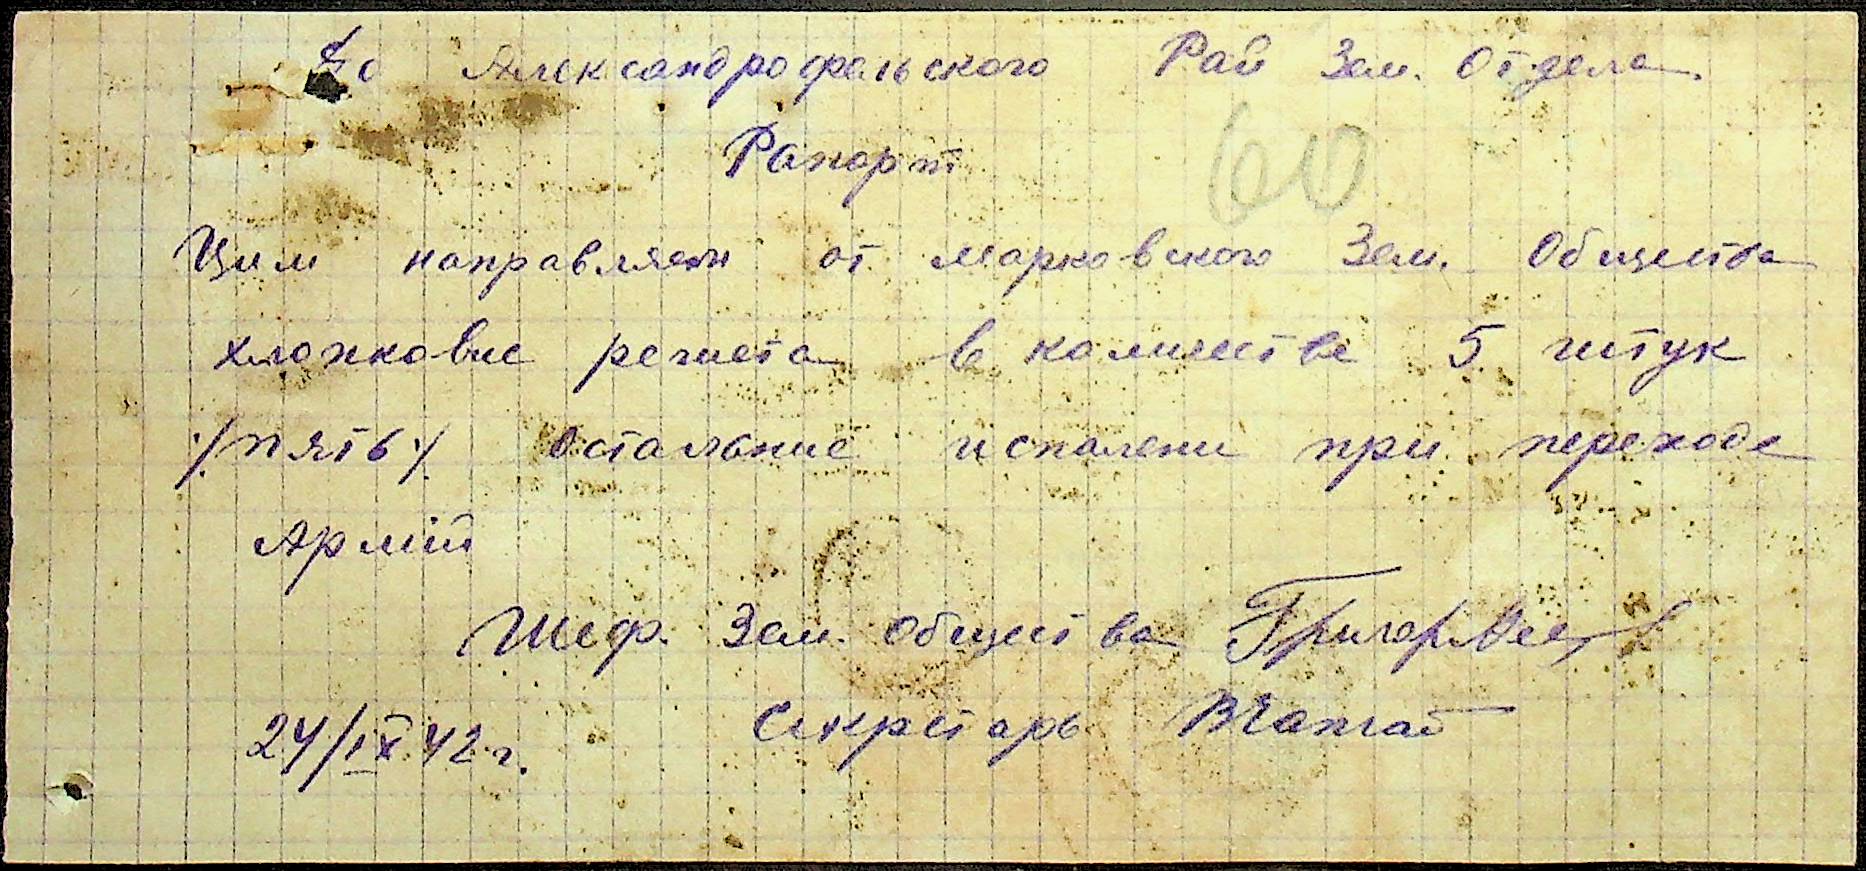 До Александрофельського Рай Зем. Отдела.
Рапорт
60
Цим направляем от марковского Зем. Общества
хлопковие решета в количестве 5 штук
/пять/. Остальние испалени при переходе
Армій
Шеф. Зем. Общества
24/IX 42 г. Секретарь